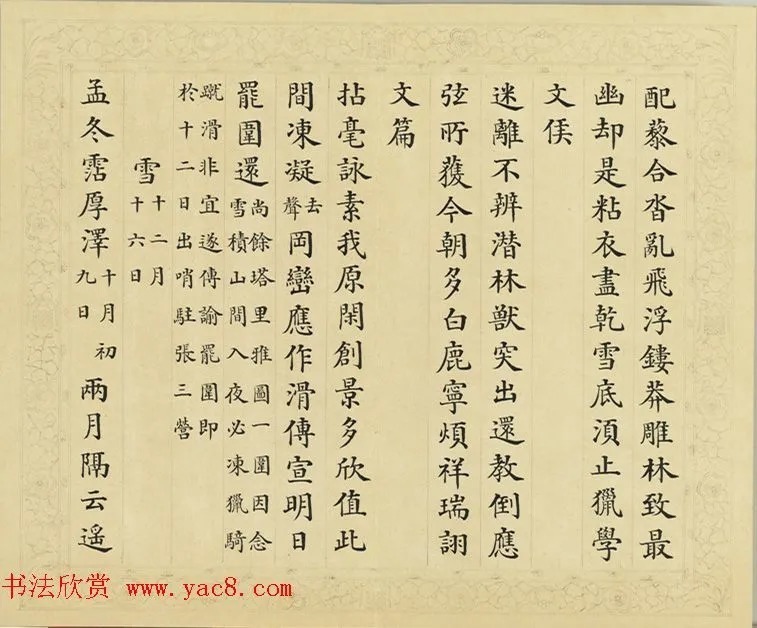 配藜合沓亂飛浮鏤莽雕林致最
幽却是粘衣盡乾雪底湏止獵學
文侯
迷離不辨潛林獸突出還教倒應
弦所獲今朝多白鹿寧煩祥瑞詡
文篇
拈毫詠素我原閑創景多欣值此
間凍凝去聲岡巒應作滑傳宣明日
罷圍還尚餘塔里雅圖一圍因念雪積山間入夜必凍獵騎
蹴滑非宜遂傳諭罷圍即於十二日出哨駐張三營
雪十二月十六日
孟冬霑厚澤十月初九日兩月隔云遙
书法欣赏 www.yac8.com